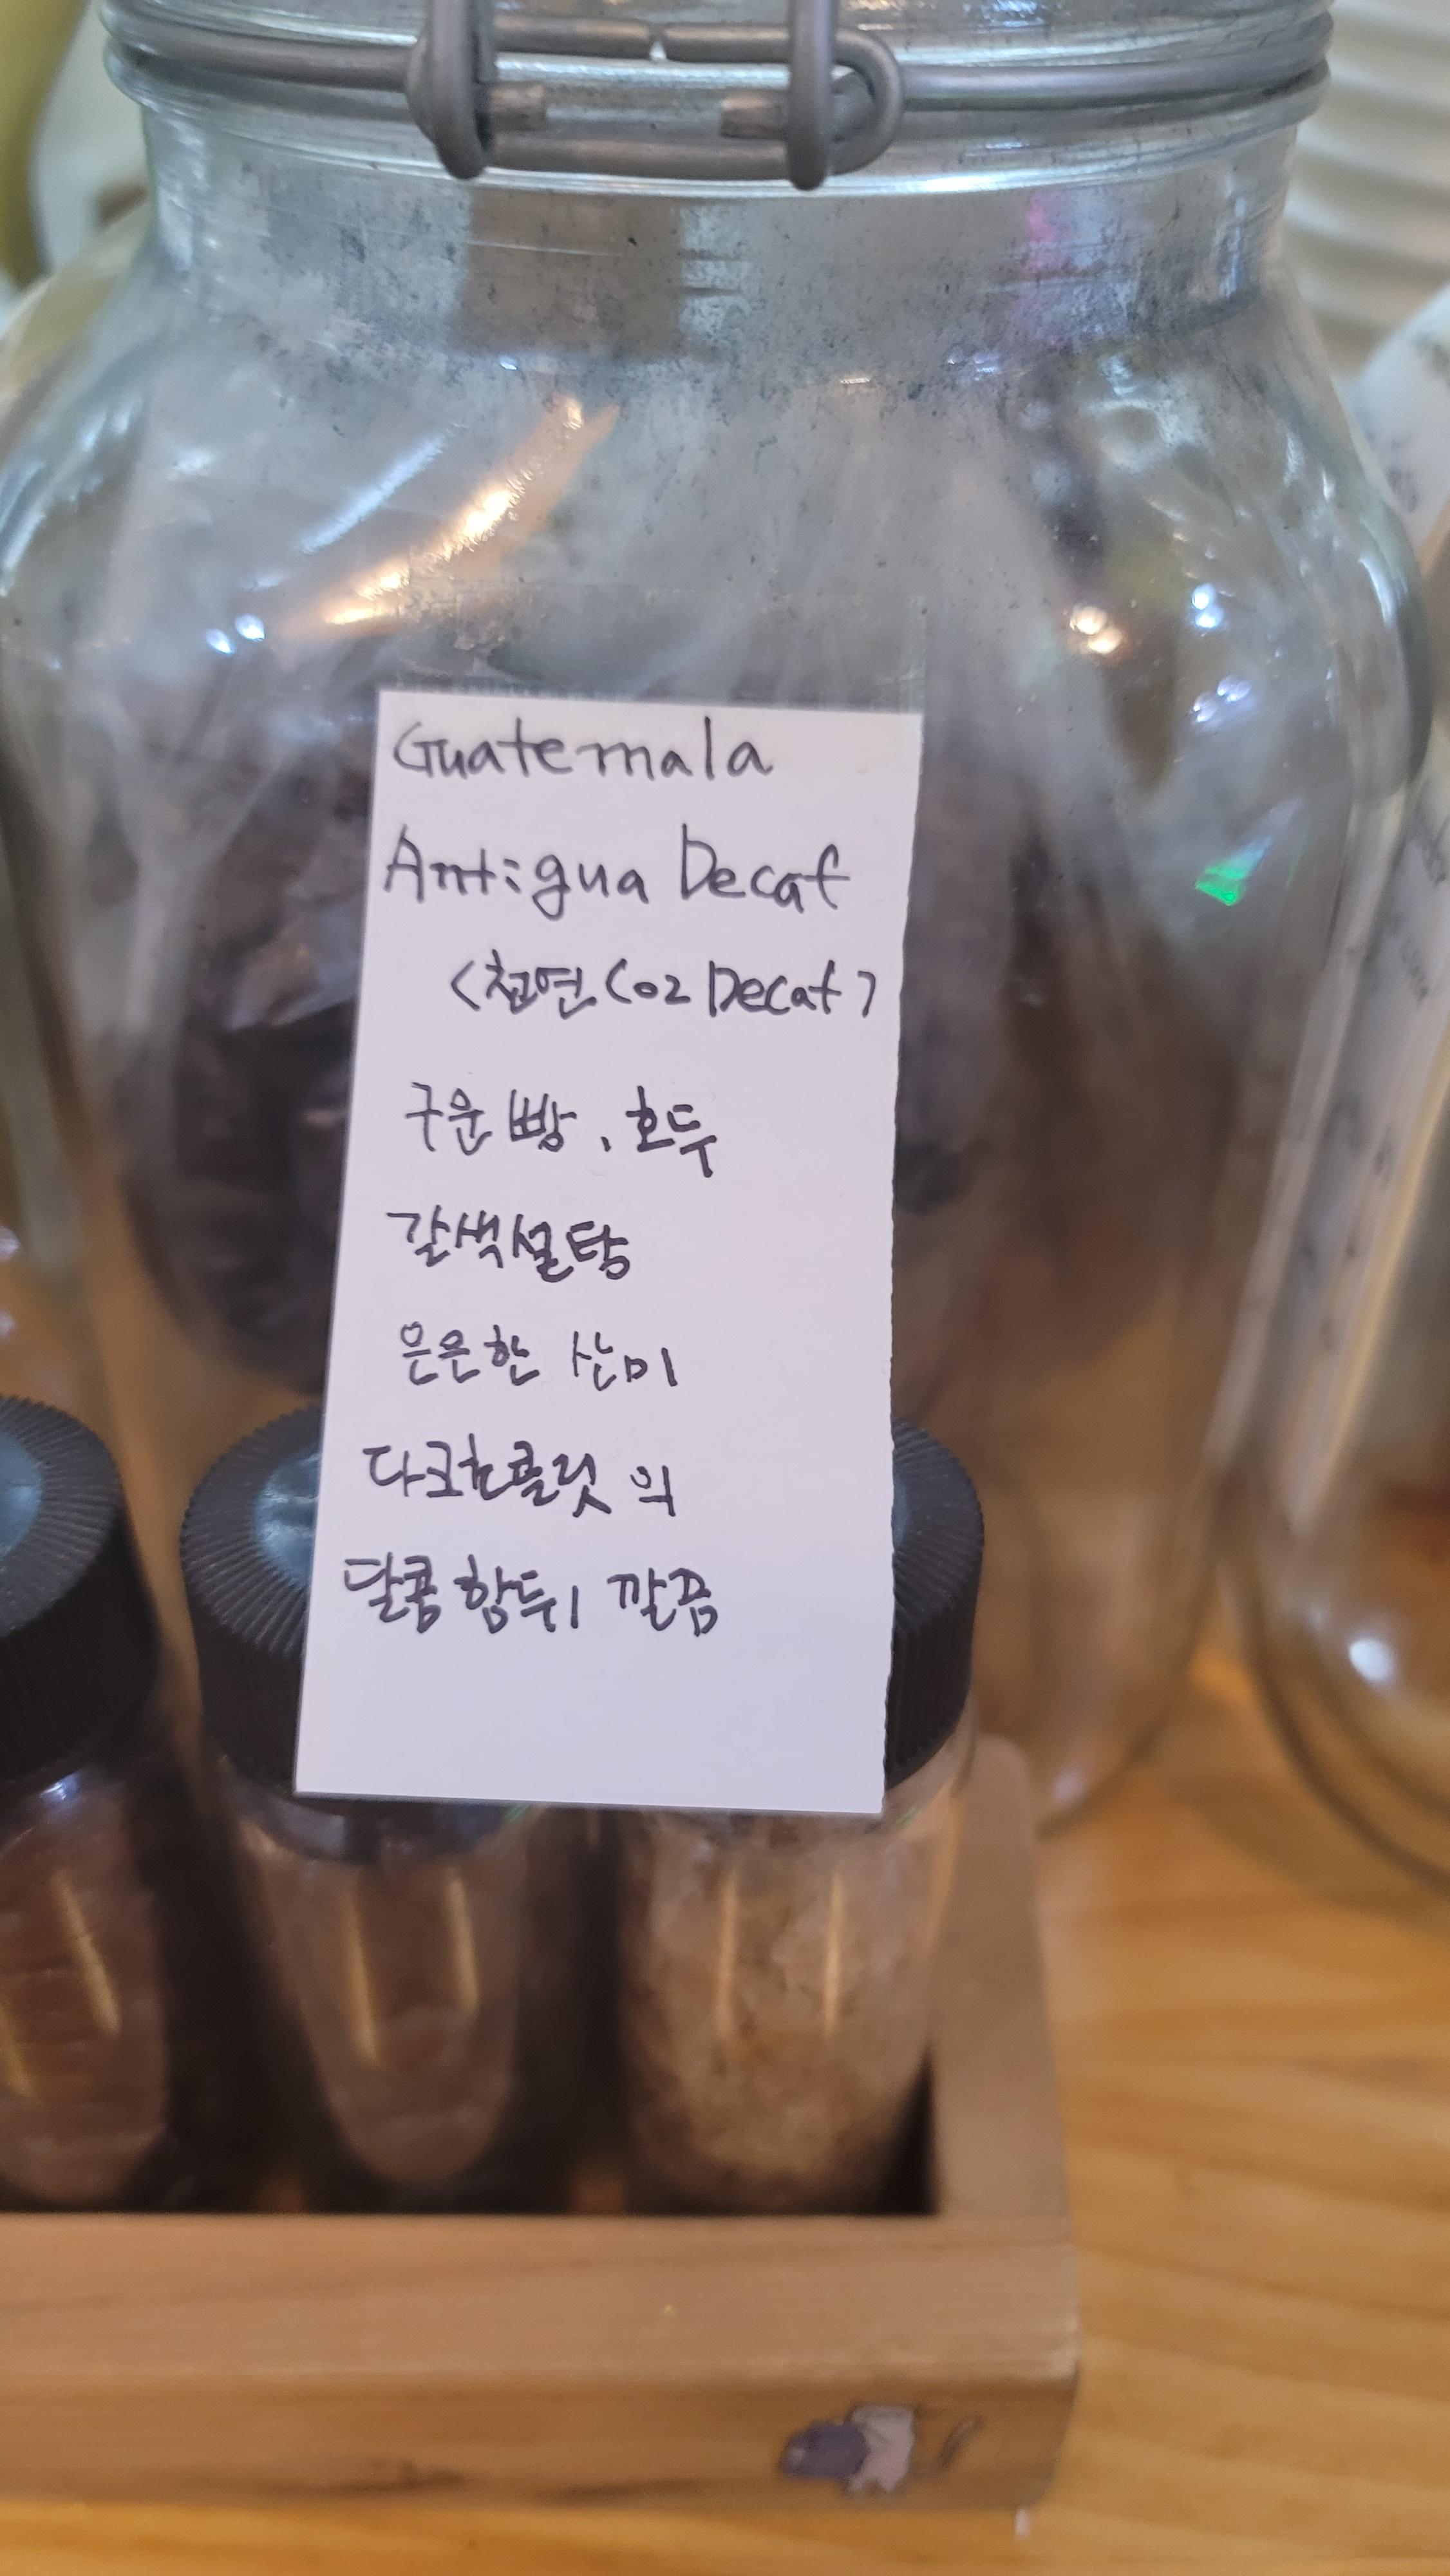 Guatemala
Antigua Decaf
<천연 CO2 Decaf>
구운 빵, 호두
갈색설탕
은은한 산미
다크초콜릿의
달콤함뒤 깔끔